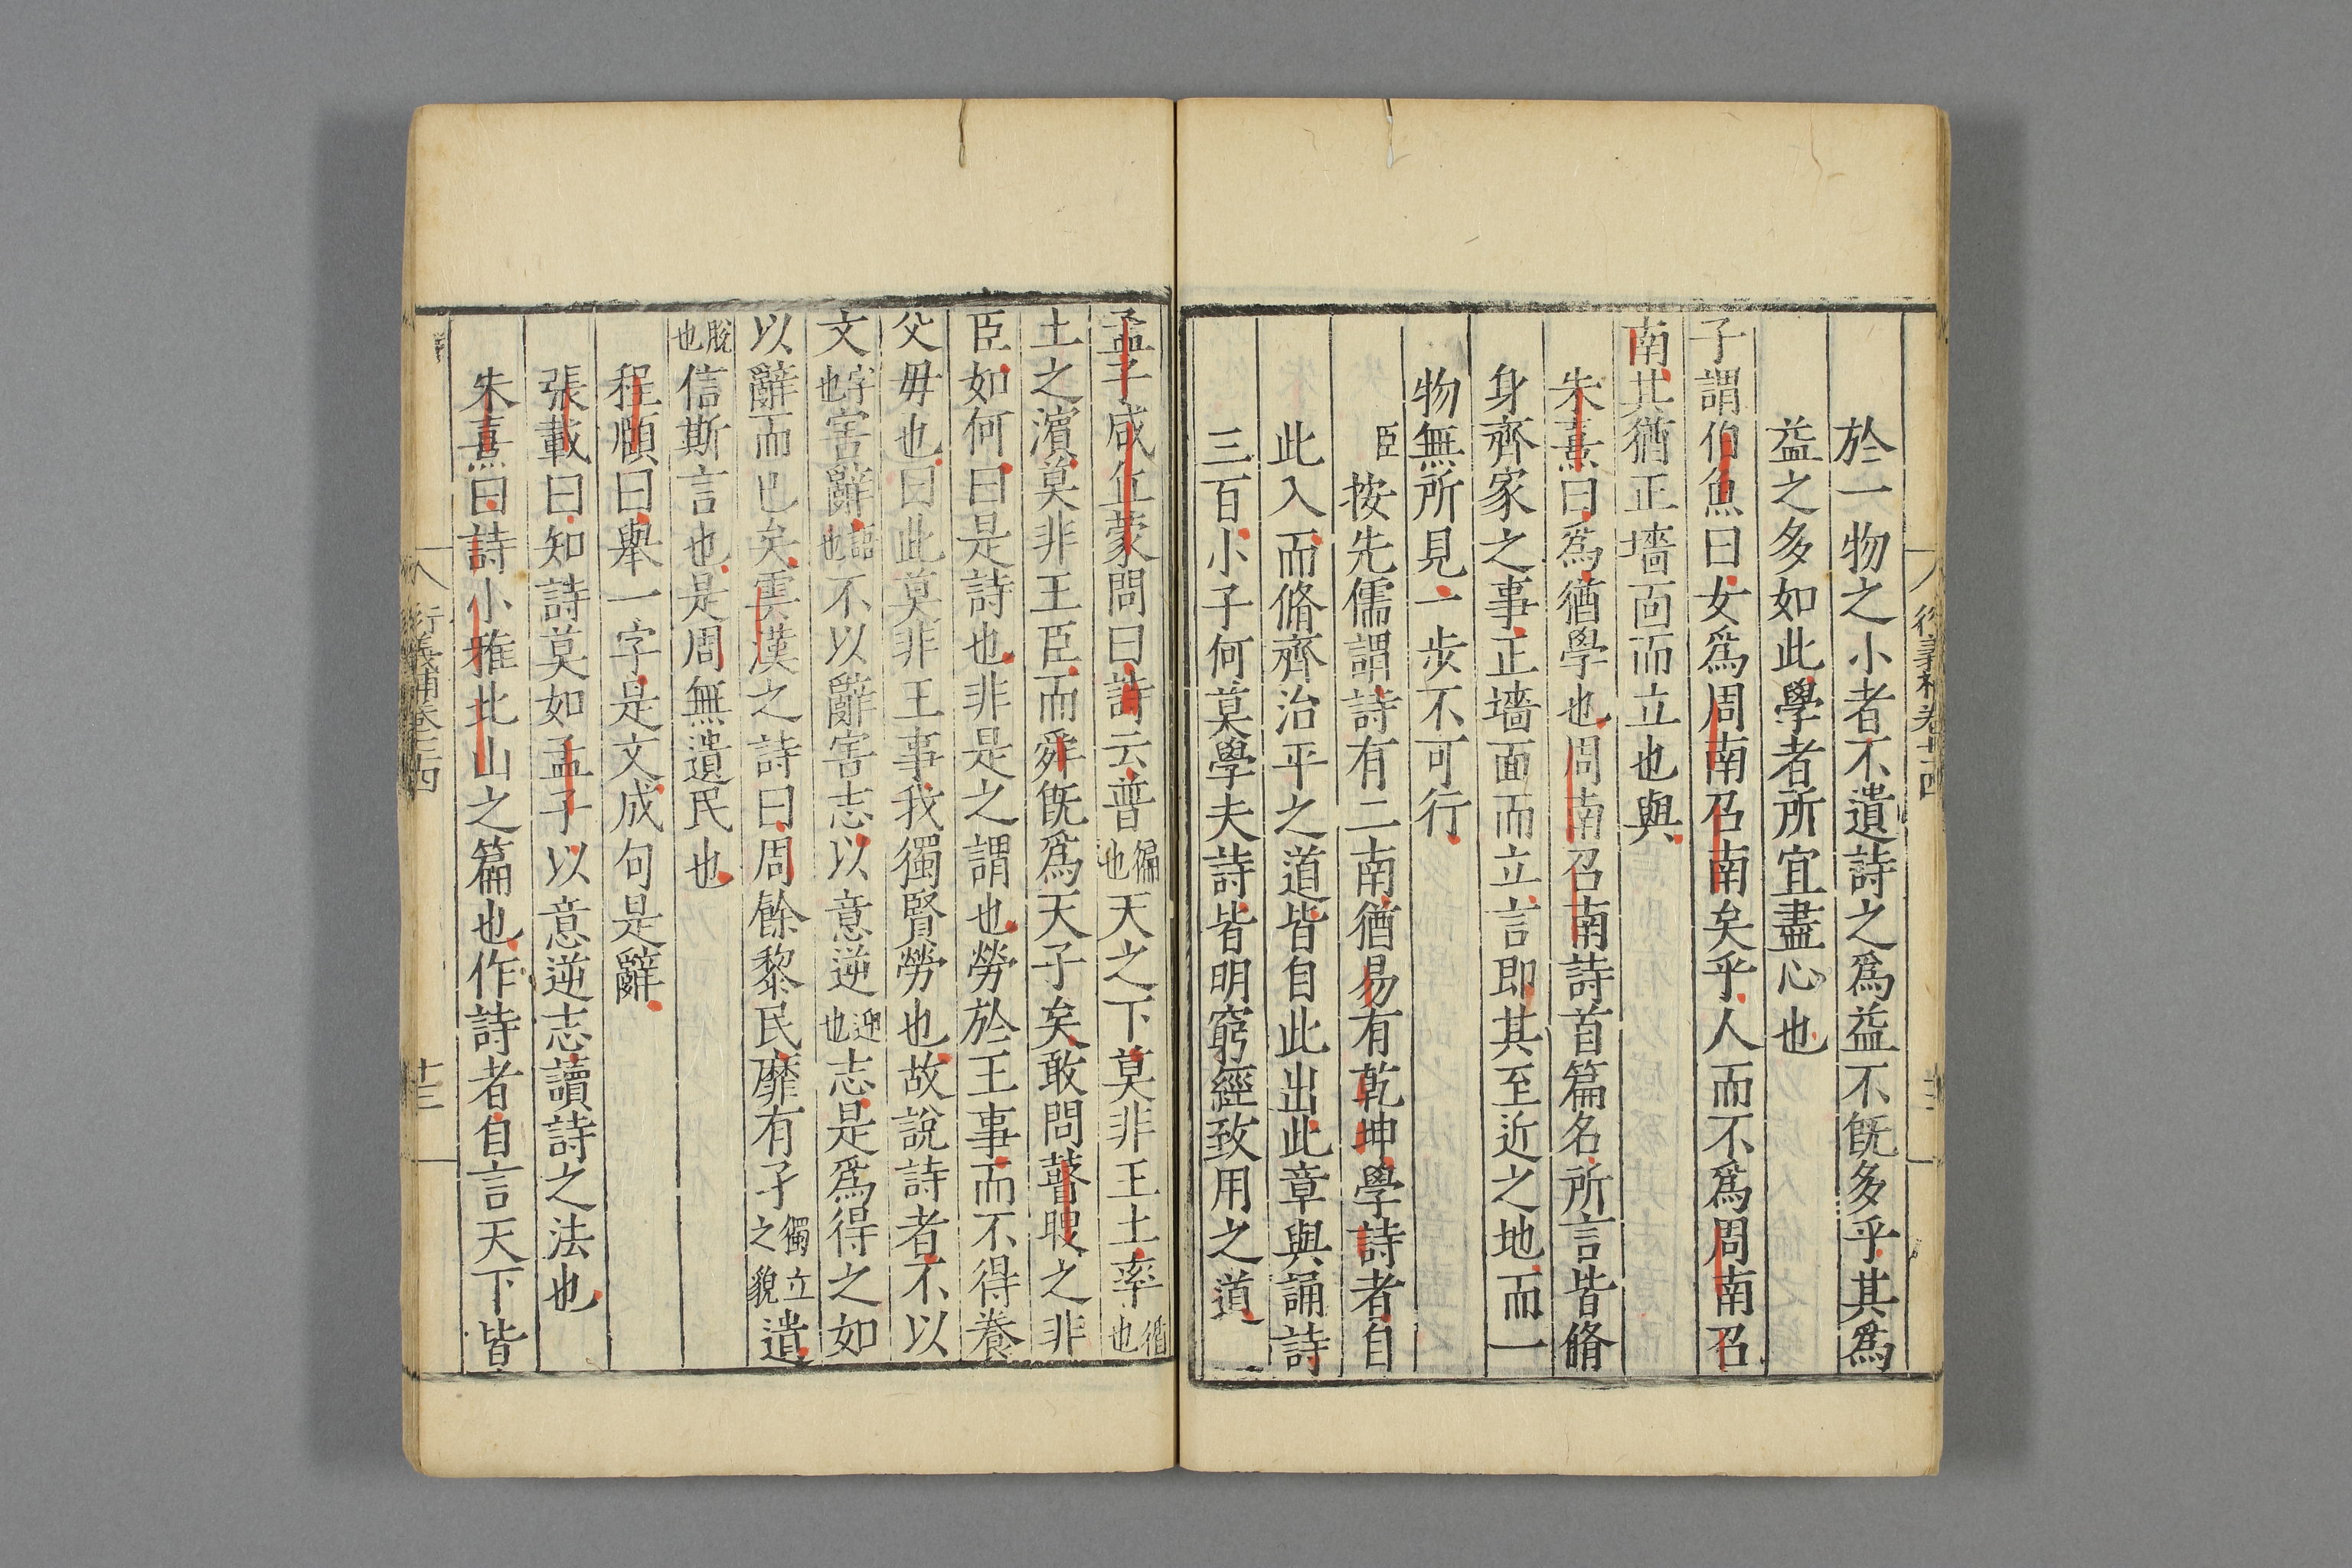 於一物之小者不遺詩之為益不旣多乎其爲
益之多如此學者所宜盡心也
子謂伯魚曰女爲周南召南矣乎人而不爲周南召
南其猶正墻靣而立也與
朱熹曰爲猶學也周南召南詩首篇名所言皆脩
身齊家之事正墻面而立言即其至近之地而一
物無所見一步不可行
臣按先儒謂詩有二南猶易有乾坤學詩者自
此入而脩齊治平之道皆自此出此章與誦詩
三百小子何莫學夫詩皆明窮經致用之道
孟子咸丘蒙問曰詩云普徧也天之下莫非王土率循也
土之濱莫非王臣而舜旣爲天子矣敢問瞽瞍之非
臣如何曰是詩也非是之謂也勞於王事而不得養
父毋也曰此莫非王事我獨賢勞也故說詩者不以
文字也害辭語也不以辭害志以意逆迎也志是爲得之如
以辭而已矣雲漢之詩曰周餘黎民靡有孑獨立之貌遺
脫也信斯言也是周無遺民也
程頤曰舉一字是文成句是辭
張載曰知詩莫如孟子以意逆志讀詩之法也
朱熹曰詩小雅北山之篇也作詩者自言天下皆
衍義補卷七十四
十三